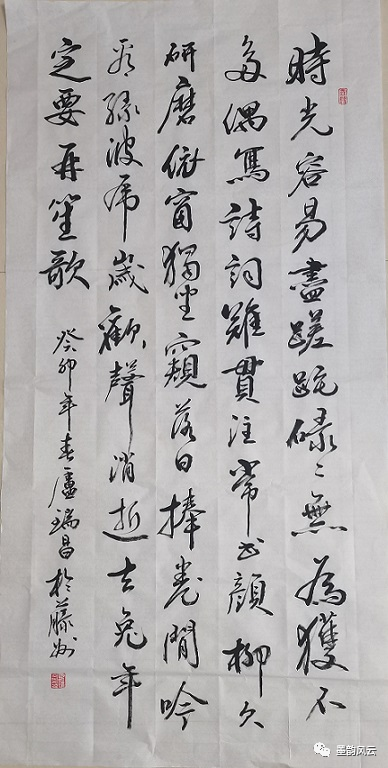 時光容易盡蹉跎碌々無為獲不
多偶寫詩詞難貫注常书顏柳欠
研磨倚窗獨坐窺落日捧卷閒吟
看綠波虎歲歡聲消逝去兔年
定要再笙歌
癸卯年春盧瑞昌於藤州
墨韵风云